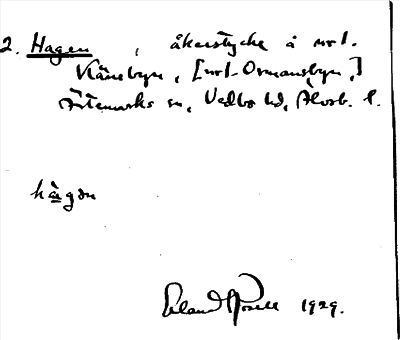 2. Hagen, åkerstycke å nr 1.
Klänebyn, [nr 1 Ormansbyn,]
Ärtemarks sn, Vedbo hd, Älvsb. l.
hàgən
Erland Rosell 1929.